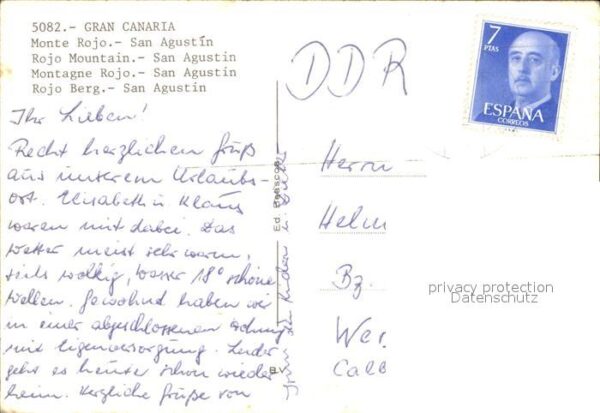 5082.- GRAN CANARIA
Monte Rojo.- San Agustín
Rojo Mountain.- San Agustin
Montagne Rojo.- San Agustin
Rojo Berg.- San Agustin
DDR
7
PTAS
ESPAÑA
CORREOS
Ihr Lieben!
Recht herzlichen Gruß
aus unserem Urlaubs-
ort. Elisabeth u. Klaus
waren mit dabei. Das
Wetter meist sehr warm,
teils wolkig, Wasser 18° schöne
Wellen. Gewohnt haben wir
in einer abgeschlossenen Wohnung
mit Eigenversorgung. Leider
geht es heute schon wieder
heim. Herzliche Grüße von
Kindern u.
Ed. 
B.V.
Herrn
Helm
Bz.
Wer.
Calb
privacy protection
Datenschutz